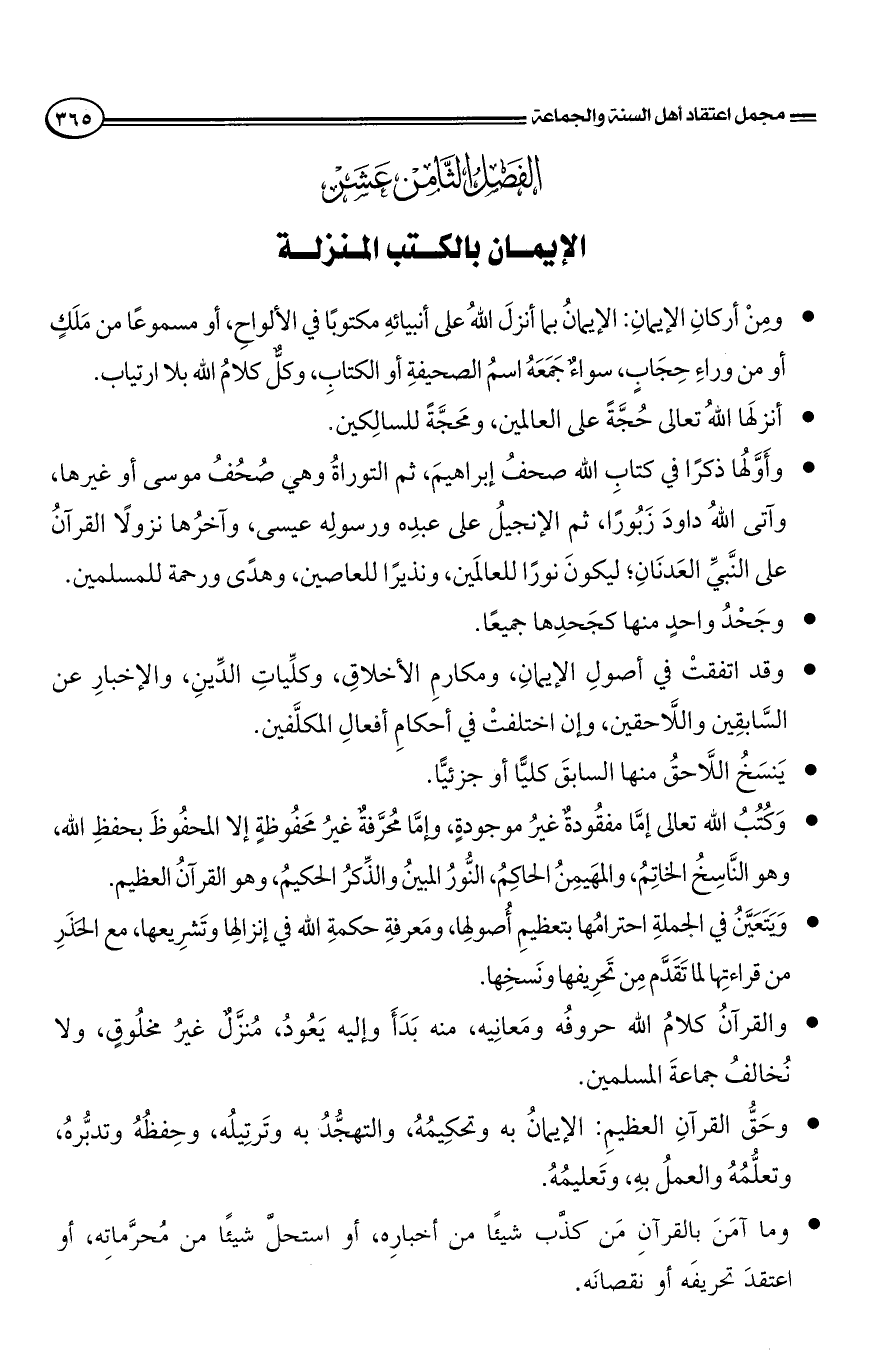 مجمل اعتقاد أهل السنة والجماعة ٣٦٥
الفَصْلُ الثَّامِنَ عَشَرَ
الإيمـان بالكـتب المـنزلـة
• ومِنْ أركانِ الإيمانِ: الإيمانُ بما أنزلَ اللهُ على أنبيائهِ مكتوبًا في الألواحِ، أو مسموعًا من مَلَكٍ
أو من وراءِ حِجَابٍ، سواءٌ جَمَعَهُ اسمُ الصحيفةِ أو الكتابِ، وكلٌّ كلامُ الله بلا ارتياب.
• أنزلَها اللهُ تعالى حُجَّةً على العالمين، ومَحَجَّةً للسالِكين.
• وأَوَّلُها ذكرًا في كتابِ الله صحفُ إبراهيمَ، ثم التوراةُ وهي صُحُفُ موسى أو غيرها،
وآتى اللهُ داودَ زَبُورًا، ثم الإنجيلُ على عبدِه ورسولِه عيسى، وآخرُها نزولًا القرآنُ
على النَّبيِّ العَدنَانِ؛ ليكونَ نورًا للعالَمَين، ونذيرًا للعاصين، وهدًى ورحمة للمسلمين.
• وجَحْدُ واحدٍ منها كجَحدِها جميعًا.
• وقد اتفقتْ في أصولِ الإيمانِ، ومكارمِ الأخلاقِ، وكلِّياتِ الدِّينِ، والإخبارِ عن
السَّابقِين واللَّاحقين، وإن اختلفتْ في أحكامِ أفعال المكلَّفين.
• يَنسَخُ اللَّاحقُ منها السابقَ كليًّا أو جزئيًّا.
• وَكُتُبُ الله تعالى إمَّا مفقُودةٌ غيرُ موجودةٍ، وإمَّا مُحَرَّفةٌ غيرُ مَحَفُوظةٍ إلا المحفُوظَ بحفظِ الله،
وهو النَّاسِخُ الخاتِمُ، والمهَيمِنُ الحاكِمُ، النُّورُ المبينُ والذِّكرُ الحكيمُ، وهو القرآنُ العظيم.
• وَيَتَعَيَّنُ في الجملةِ احترامُها بتعظيمِ أُصولِها، ومَعرفةِ حكمةِ الله في إنزالِها وتَشرِيعها، مع الحَذَرِ
من قراءتِها لما تَقَدَّم مِن تَحَرِيفها ونَسخِها.
• والقرآنُ كلامُ الله حروفُه ومَعانِيه، منه بَدَأَ وإليه يَعُودُ، مُنزَّلٌ غيرُ مخلُوقٍ، ولا
نُخالفُ جماعةَ المسلمين.
• وحَقُّ القرآنِ العظيمِ: الإيمانُ به وتحكِيمُهُ، والتهجُّدُ به وتَرتِيلُه، وحِفظُهُ وتدبُّرهُ،
وتعلُّمُهُ والعملُ بهِ، وتَعليمُهُ.
• وما آمَنَ بالقرآنِ مَن كذَّب شيئًا من أخبارِه، أو استحلَّ شيئًا من مُحرَّماتِه، أو
اعتقدَ تحريفَه أو نقصانَه.